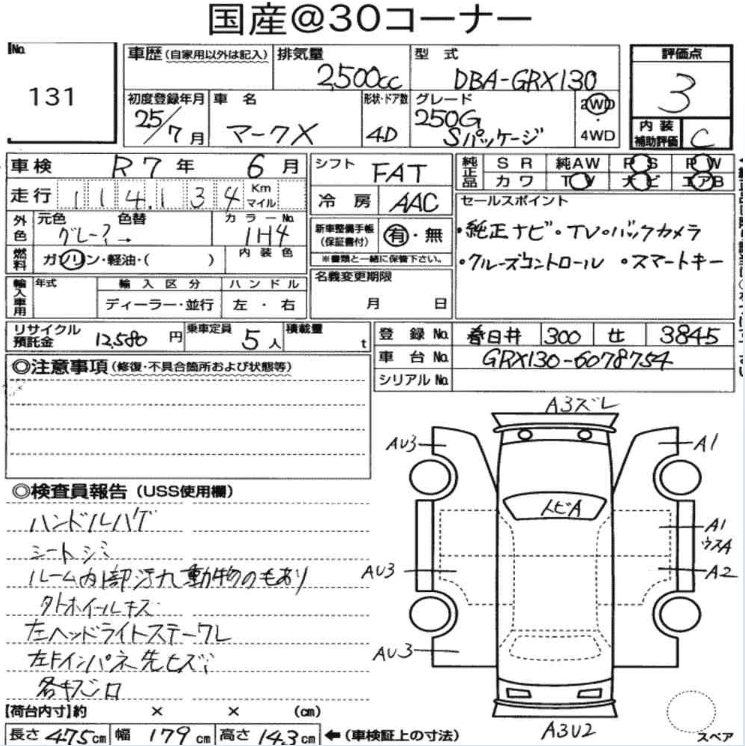 国産@30コーナー
No. 131
車歴（自家用以外は記入）
排気量 2,500cc
型式 DBA-GRX130
評価点 3
内装補助評価 C
初度登録年月 25/7月
車名 マークX
形状・ドア数 4D
グレード 250G Sパッケージ
2WD・4WD
車検 R7年 6月
シフト FAT
純正品 SR 純AW PS PW
カワ TV ナビ エアB
走行 114,134 Km マイル
冷房 AAC
セールスポイント
・純正ナビ・TV・バックカメラ
・クルーズコントロール ・スマートキー
外色 元色 色替 カラーNo.
グレー →
1H4
新車整備手帳（保証書付） 有・無
※書類と一緒に保管下さい。
燃料 ガソリン・軽油・（ ） 内装色
名義変更期限 月 日
輸入車用 年式 輸入区分 ハンドル
ディーラー・並行 左・右
リサイクル預託金 12,580円
乗車定員 5人
積載量 t
登録No. 春日井 300 せ 3845
車台No. GRX130-6078754
シリアルNo.
◎注意事項（修復・不具合箇所および状態等）
A3ズレ
AU3
A1
トビA
A1
ウスA
AU3
A2
AU3
A3U2
スペア
◎検査員報告（USS使用欄）
ハンドルハゲ
シートシミ
ルーム内部汚れ動物のもあり
外ホイールキズ
左ヘッドライトステーワレ
左FインパネL先ヒズミ
各キズシロ
【荷台内寸】約 × × （cm）
長さ 475cm 幅 179cm 高さ 143cm ←（車検証上の寸法）